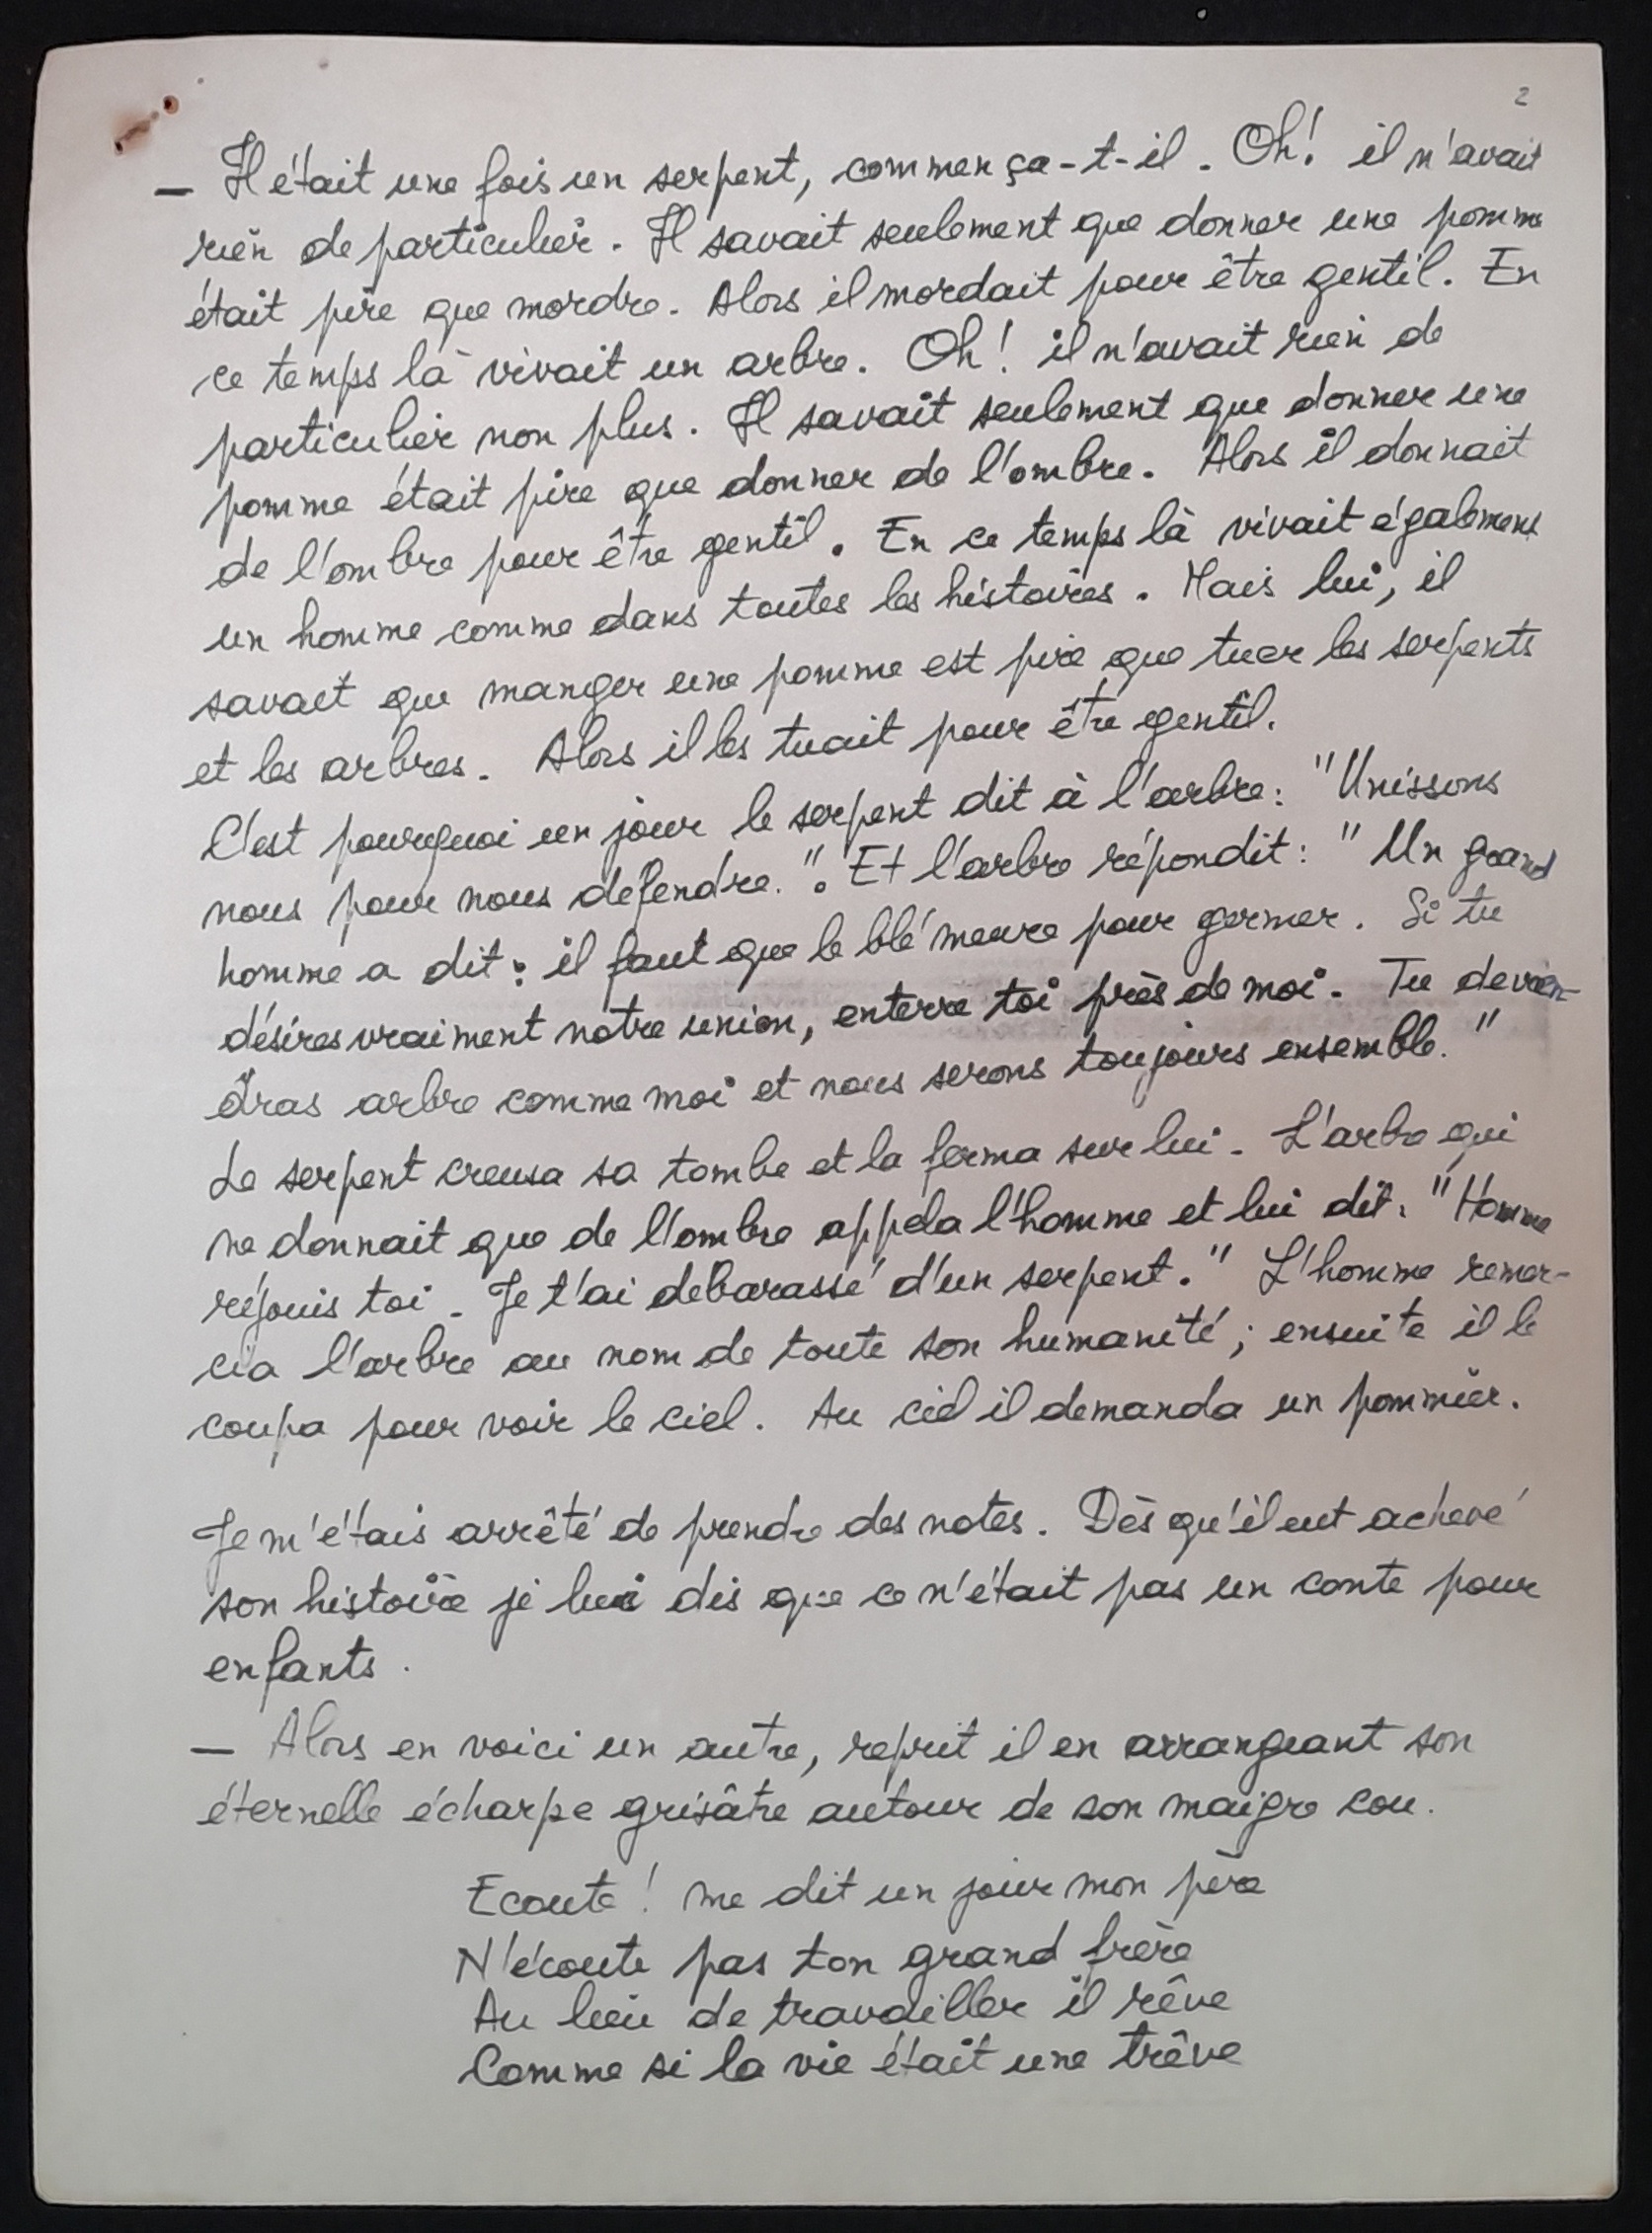 2
— Il était une fois un serpent, commença-t-il. Oh! il n'avait
rien de particulier. Il savait seulement que donner une pomme
était pire que mordre. Alors il mordait pour être gentil. En
ce temps là vivait un arbre. Oh! il n'avait rien de
particulier non plus. Il savait seulement que donner une
pomme était pire que donner de l'ombre. Alors il donnait
de l'ombre pour être gentil. En ce temps là vivait également
un homme comme dans toutes les histoires. Mais lui, il
savait que manger une pomme est pire que tuer les serpents
et les arbres. Alors il les tuait pour être gentil.
C'est pourquoi un jour le serpent dit à l'arbre: "Unissons
nous pour nous defendre.". Et l'arbre répondit: "Un grand
homme a dit: il faut que le blé meure pour germer. Si tu
désires vraiment notre union, enterre toi près de moi. Tu devien-
dras arbre comme moi et nous serons toujours ensemble."
Le serpent creusa sa tombe et la ferma sur lui. L'arbre qui
ne donnait que de l'ombre appela l'homme et lui dit: "Homme
réjouis toi. Je t'ai debarassé d'un serpent." L'homme remer-
cia l'arbre au nom de toute son humanité; ensuite il le
coupa pour voir le ciel. Au ciel il demanda un pommier.
Je m'étais arrêté de prendre des notes. Dès qu'il eut achevé
son histoire je lui dis que ce n'était pas un conte pour
enfants.
— Alors en voici un autre, reprit il en arrangeant son
éternelle écharpe grisâtre autour de son maigre cou.
Ecoute! me dit un jour mon père
N'écoute pas ton grand frère
Au lieu de travailler il rêve
Comme si la vie était une trêve